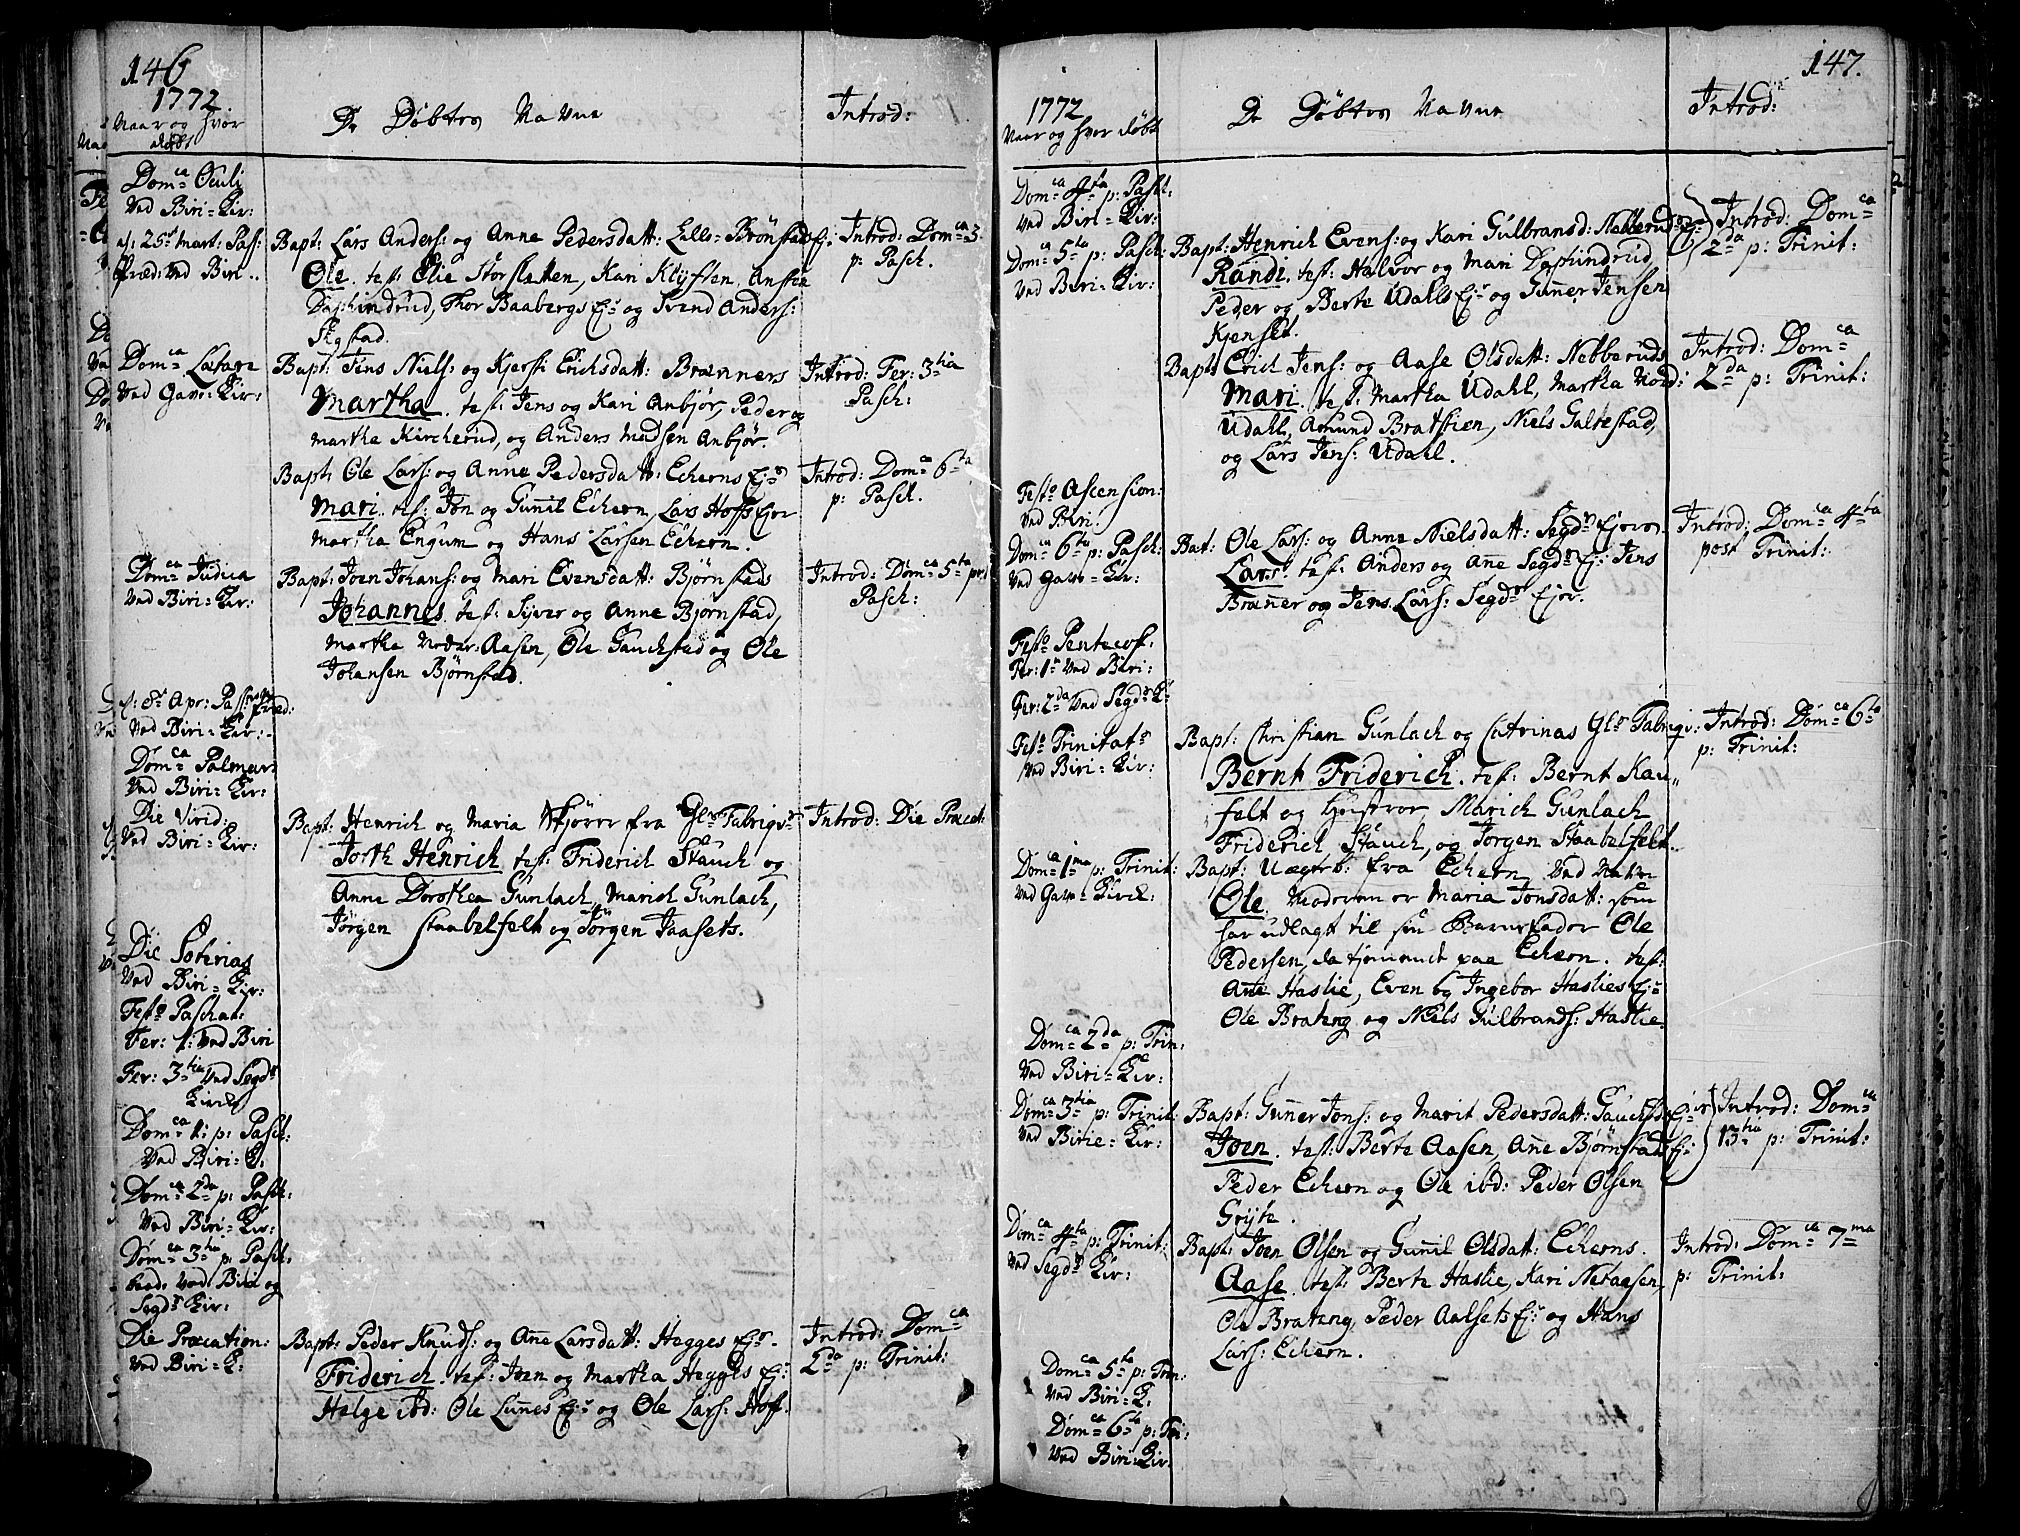 146
1772.
Naar og hvor
døbt
De Døbtes Navne
Introd:
Dom:ca Oculi
Ved Biri-Kir:
d: 25 Mart: Pas:
Præd: Ved Biri..
Bapt: Lars Anders: og Anne Pedersdatt: Lills-Brønstad Ej:
Ole. test: Elie Storsletten, Kari Klÿften, Ansten
Daphindrud, Thor Baabergs Ej: og Svend Anders:
Skÿstad.
Introd: Dom:ca 3
p: Pasch.
Dom:ca Lætare
Ved Gav: Kir:
Bapt: Jens Niels: og Kjersti Erichsdatt: Brænners
Martha. test: Jens og Kari Anbjør, Peder og
Martha Kircherud, og Anders Madsen Anbjør.
Introd: Fer: 3tia
Pasch:
Bapt: Ole Lars: og Anne Pedersdatt: Echerns Ej:
Mari. test: Jon og Gunil Echern, Lars Hoffs Ejer
Martha Engum og Hans Larsen Echern.
Introd: Dom:ca 6ta
p: Pasch.
Dom:ca Judica
Ved Biri-Kir:
Bapt: Joen Johans: og Mari Evensdatt: Bjørnstads
Johannes. test: Siver og Anne Bjørnstad,
Martha Nedar:Aasen, Ole Gauchstad og Ole
Johansen Bjørnstad.
Introd: Dom:ca 5ta p:
Pasch:
d: 8 Apr: Pass: Præd:
Ved Biri-Kir:
Dom:ca Palmar:
Ved Biri-Kir:
Die Virid:
Ved Biri-Kir:
Bapt: Henrich og Maria Skjører fra Gl: Fabriqv:
Jorth Henrich test: Friderich Stauch og
Anne Dorothea Gunlach, Marich Gunlach,
Jørgen Staabelfelt og Jørgen Jaasets.
Introd: Die Præcat:
Die Soterias
Ved Biri-Kir:
Festo Paschat:
Fer: 1: Ved Biri
Fer: 3tia Ved Segd:
Kirche
Dom:ca 1: p: Pasch:
Ved Biri-K:
Dom:ca 2da p: Pasch:
Ved Biri-Kir:
Dom:ca 3tia p: Pasch:
baade Ved Biri og
Segd: Kir:
Die Præcation:
Ved Biri-K:
Bapt: Peder Knuds: og Ane Larsdatt: Hegges Ej:
Friderich. test: Joen og Martha Hegges Ej:
Helge ibd: Ole Lunnes Ej: og Ole Lars: Hoff.
Introd: Dom:ca
2da p: Trinit:
147.
1772
Naar og hvor døbt
De Døbtes Navne
Introd:
Dom:ca 4ta p: Pasch:
Ved Biri-Kir:
Dom:ca 5ta p: Pasch:
Ved Biri-Kir:
Bapt: Henrich Evens: og Kari Gulbrands: Nebberuds Ej:
Randi. test: Halvor og Mari Daphindrud,
Peder og Berte Udahls Ej: og Gunner Jensen
Kjenset.
Introd: Dom:ca
2da p: Trinit:
Bapt: Erich Jens: og Aase Olsdatt: Nebberuds
Mari. test: Martha Udahl, Martha Nord:
Udahl, Amund Bratstien, Niels Galtestad,
og Lars Jens: Udahl.
Introd: Dom:ca
2da p: Trinit:
Festo Ascension:
Ved Biri.
Dom:ca 6ta p: Pasch:
Ved Gavo-Kir:
Bat: Ole Lars: og Anne Nielsdatt: Segd: Ejere
Lars: test: Anders og Ane Segd: Ej: Jens
Brænner og Jens Lars: Segd: Ejer.
Introd: Dom:ca 4ta
post Trinit:
Festo Pentecost:
Fer: 1: Ved Biri:
Fer: 2da Ved Segd: K:
Festo Trinitat:
Ved Biri-Kir:
Bapt: Christian Gunlach og Catrinas Gl: Fabriqv:
Bernt Friderich. test: Bernt Kau-
felt og Hustroe, Marich Gunlach
Friderich Stauch, og Jørgen Staabelfelt.
Introd: Dom:ca 6ta
p: Trinit:
Dom:ca 1ma p: Trinit:
Ved Gavo-Kirch:
Bapt: Uægteb: fra Echern Ved Navn
Ole. Moderen er Maria Jonsdatt: som
har udlagt til sin Barnefader Ole
Pedersen, da tjenende paa Echern. test:
Ane Haslie, Even og Ingebor Haslies Ej:
Ole Brateng og Niels Gulbrands: Haslie.
Dom:ca 2da p: Trin:
Ved Biri-Kir:
Dom:ca 3tia p: Trinit:
Ved Birie-Kir:
Bapt: Gunner Jons: og Marit Pedersdatt: Gauchstad Ejer
Joen. test: Berte Aasen, Ane Bjørnstad Ej:
Peder Echern og Ole ibd: Peder Olsen
Grÿte.
Introd: Dom:ca
13tia p: Trinit:
Dom:ca 4ta p: Trinit:
Ved Segd: Kir:
Bapt: Joen Olsen og Gunil Olsdatt: Echerns.
Aase. test: Berte Haslie, Kari Netaasen,
Ole Brateng, Peder Aalsets Ej: og Hans
Lars: Echern.
Introd: Dom:ca 7ma
p: Trinit:
Dom:ca 5ta p: Trin:
Ved Biri-K:
Dom:ca 6ta p: Tri:
Ved Biri-Kir.